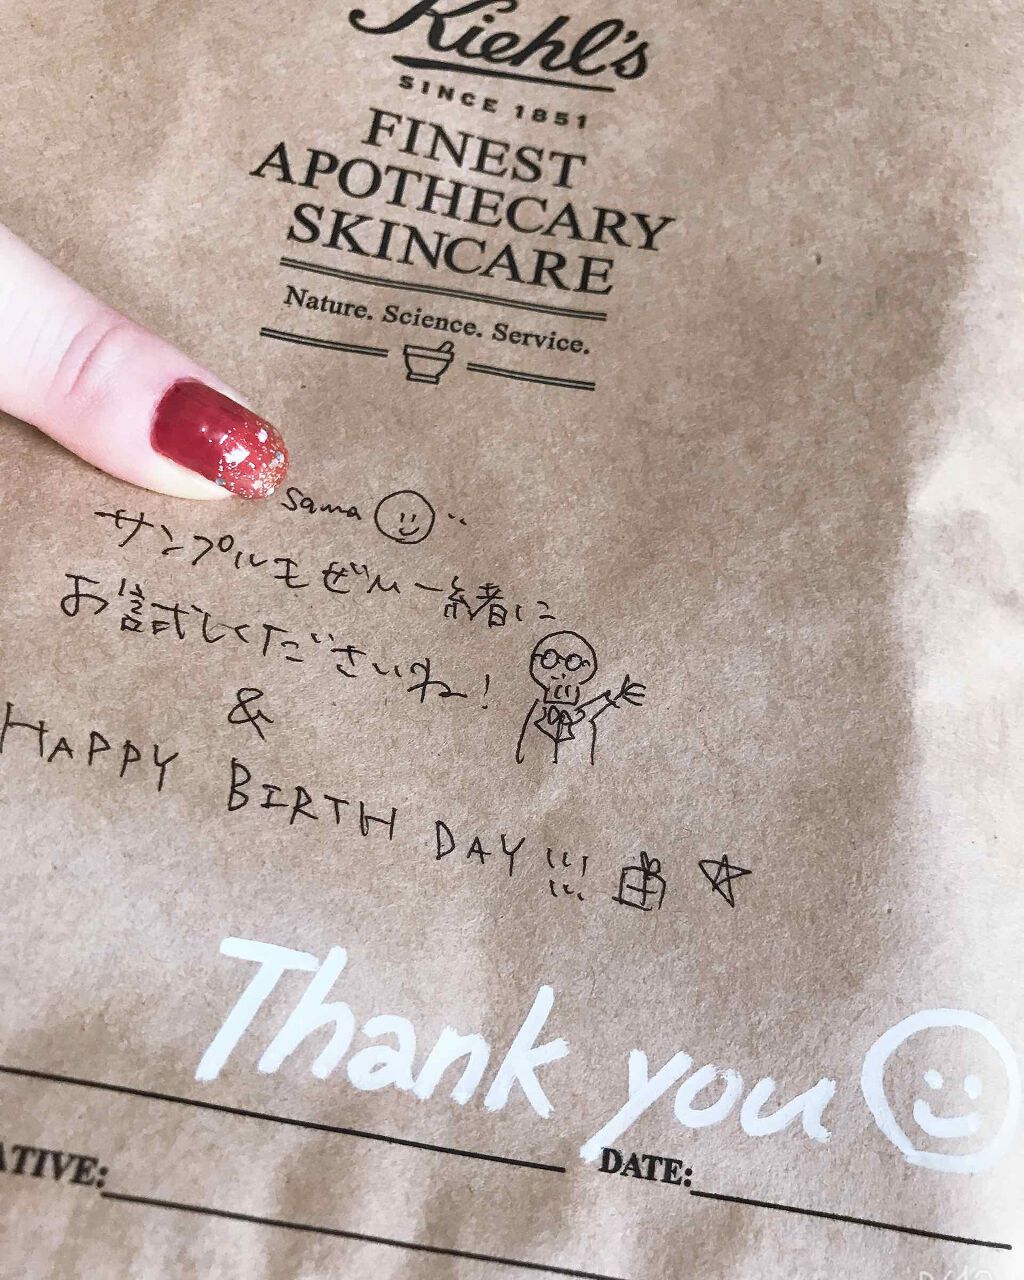 Kiehl's
SINCE 1851
FINEST
APOTHECARY
SKINCARE
Nature. Science. Service.
sama
サンプルもぜひ一緒に
お試しくださいね!
&
HAPPY BIRTH DAY!!!
Thank you
ATIVE:
DATE: